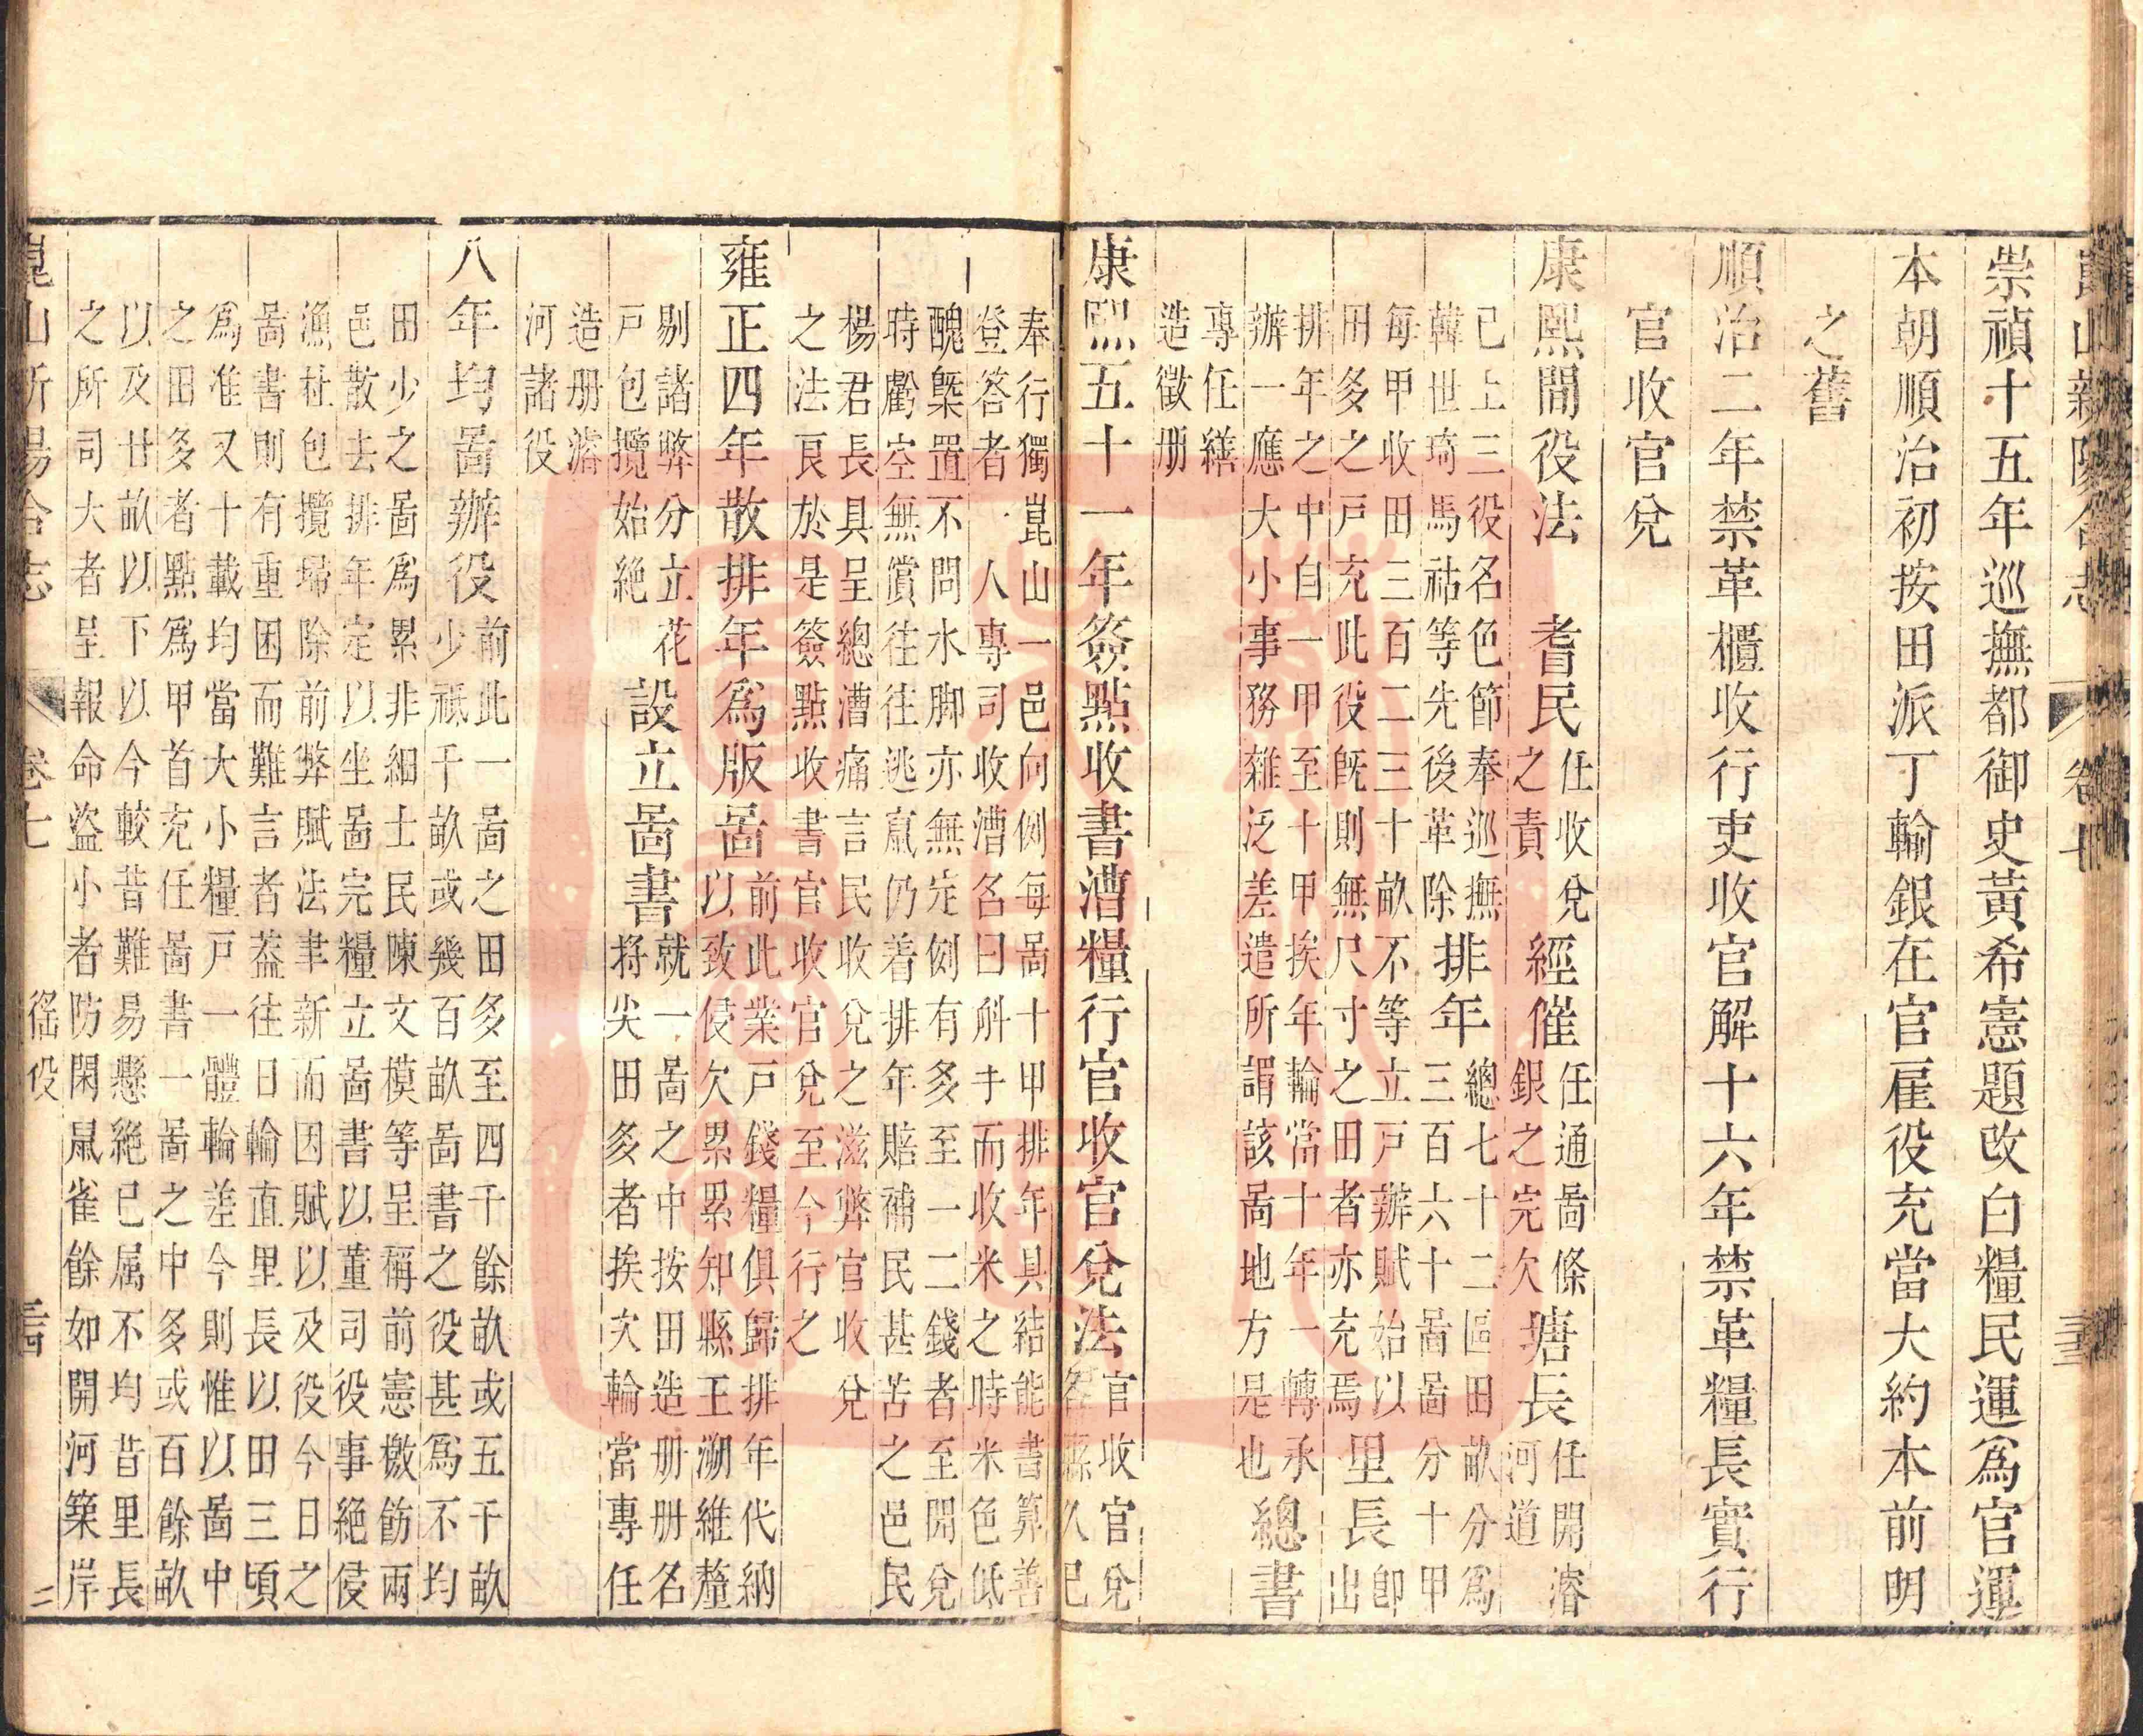 崑山新陽合志 卷七
崇禎十五年巡撫都御史黃希憲題改白糧民運為官運
本朝順治初按田派丁輸銀在官雇役充當大約本前明
之舊
順治二年禁革櫃收行吏收官解十六年禁革糧長實行
官收官兌
康熙間役法 耆民任收兌之責 經催任通啚條銀之完欠 塘長任開濬河道
已上三役名色節奉巡撫韓世琦馬祜等先後革除 排年總七十二區田畝分為三百六十啚啚分十甲
每甲收田三百二三十畝不等立戶辦賦始以田多之戶充此役既則無尺寸之田者亦充焉 里長即出
排年之中自一甲至十甲挨年輪當十年一轉承辦一應大小事務雜泛差遣所謂該啚地方是也 總書
專任繕造徵册
康熙五十一年簽點收書漕糧行官收官兌法官收官兌各縣久已
奉行獨崑山一邑向例每啚十甲排年具結能書算善
登答者一人專司收漕名曰斛手而收米之時米色低
醜槩置不問水脚亦無定例有多至一二錢者至開兌
時虧空無償往往逃竄仍着排年賠補民甚苦之邑民
楊君長具呈總漕痛言民收兌之滋弊官收兌
之法良於是簽點收書官收官兌至今行之
雍正四年散排年為版啚前此業戶錢糧俱歸排年代納以致侵欠累累知縣王溯維釐
剔諸弊分立花戶包攬始絶 設立啚書就一啚之中按田造册册名將尖田多者挨次輪當專任
造册濬河諸役
八年均啚辦役前此一啚之田多至四千餘畝或五千畝少祗千畝或幾百畝啚書之役甚為不均
田少之啚為累非細士民陳文模等呈稱前憲檄飭兩
邑散去排年定以坐啚完糧立啚書以董司役事絶侵
漁杜包攬歸除前弊賦法聿新而因賦以及役今日之
啚書則有重困而難言者葢往日輪直里長以田三頃
為准又十載均當大小糧戶一體輪差今則惟以啚中
之田多者點為甲首充任啚書一啚之中多或百餘畝
以及廿畝以下以今較昔難易懸絶已属不均昔里長
之所司大者呈報命盜小者防閑鼠雀餘如開河築岸
崑山新陽合志 卷七 徭役 二